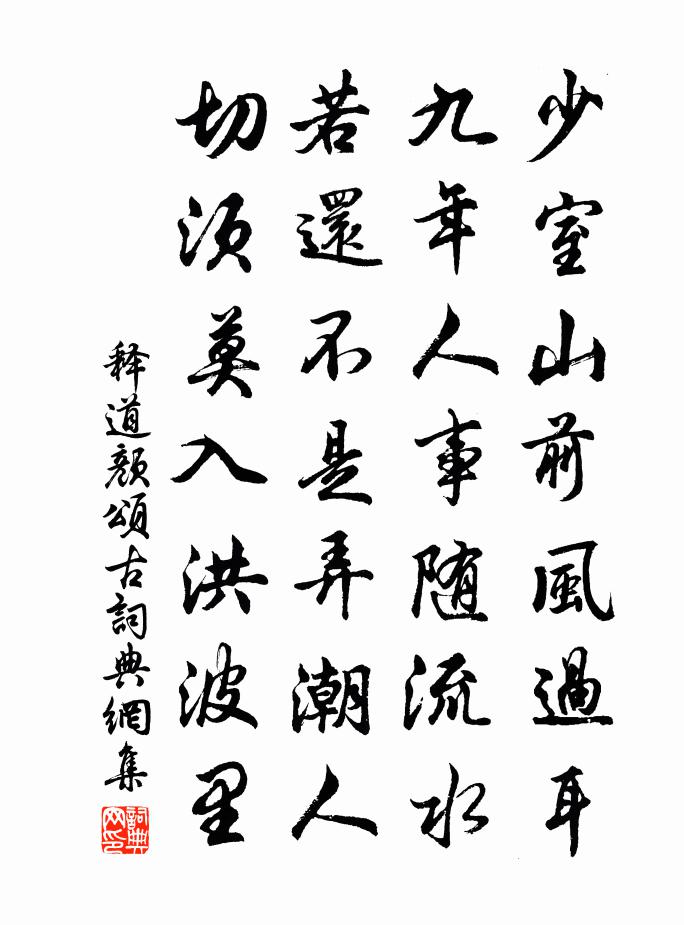 少室山前風過耳
九年人事随流水
若還不是弄潮人
切須莫入洪波里
释道颜頌古詞典網集
詞典网印